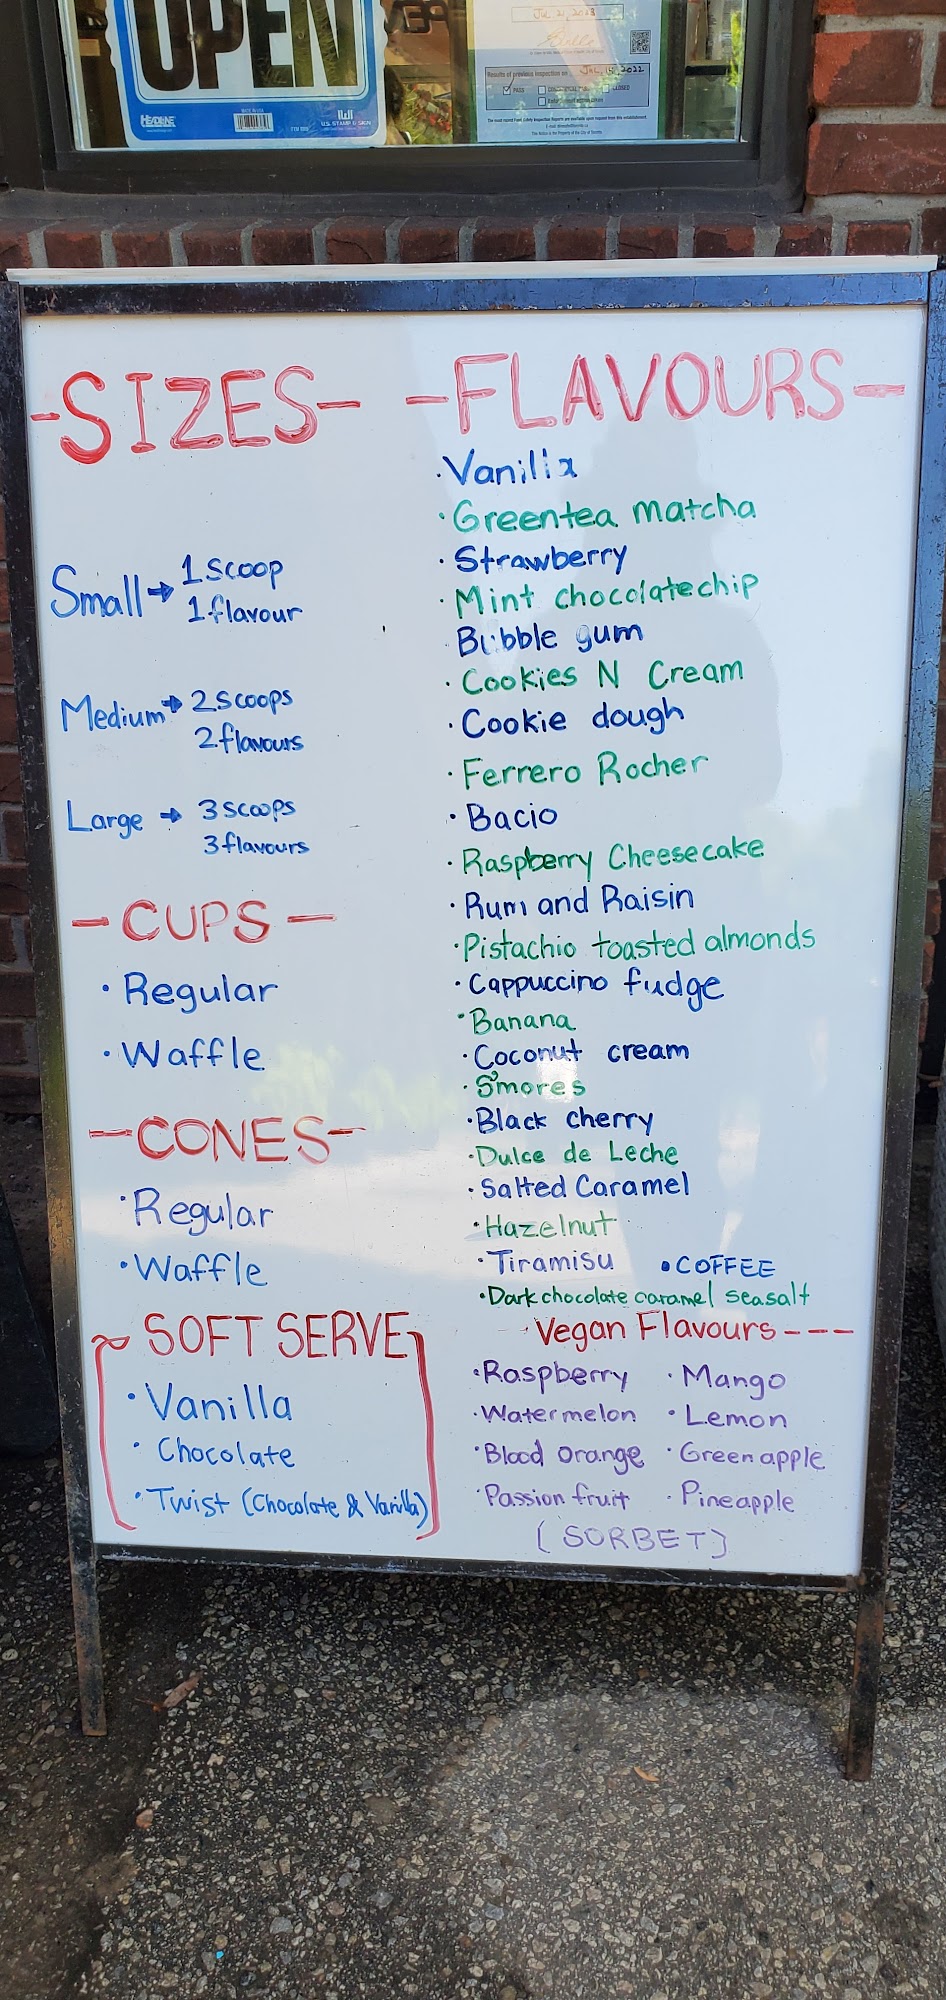 OPEN
HEADLINE
MADE IN USA
U.S. STAMP & SIGN
JUL 21, 2023
Results of previous inspection on JUL. 15, 2022
PASS
CLOSED
-SIZES-
Small → 1 scoop
1 flavour
Medium → 2 scoops
2 flavours
Large → 3 scoops
3 flavours
- CUPS -
• Regular
• Waffle
- CONES -
• Regular
• Waffle
SOFT SERVE
• Vanilla
• Chocolate
• Twist (Chocolate & Vanilla)
- FLAVOURS -
• Vanilla
• Greentea matcha
• Strawberry
• Mint chocolatechip
Bubble gum
• Cookies N Cream
• Cookie dough
• Ferrero Rocher
• Bacio
• Raspberry Cheesecake
• Rum and Raisin
• Pistachio toasted almonds
• Cappuccino fudge
• Banana
• Coconut cream
• S'mores
• Black cherry
• Dulce de Leche
• Salted Caramel
• Hazelnut
• Tiramisu • COFFEE
• Dark chocolate caramel seasalt
Vegan Flavours ---
• Raspberry • Mango
• Watermelon • Lemon
• Blood orange • Green apple
• Passion fruit • Pineapple
[SORBET]